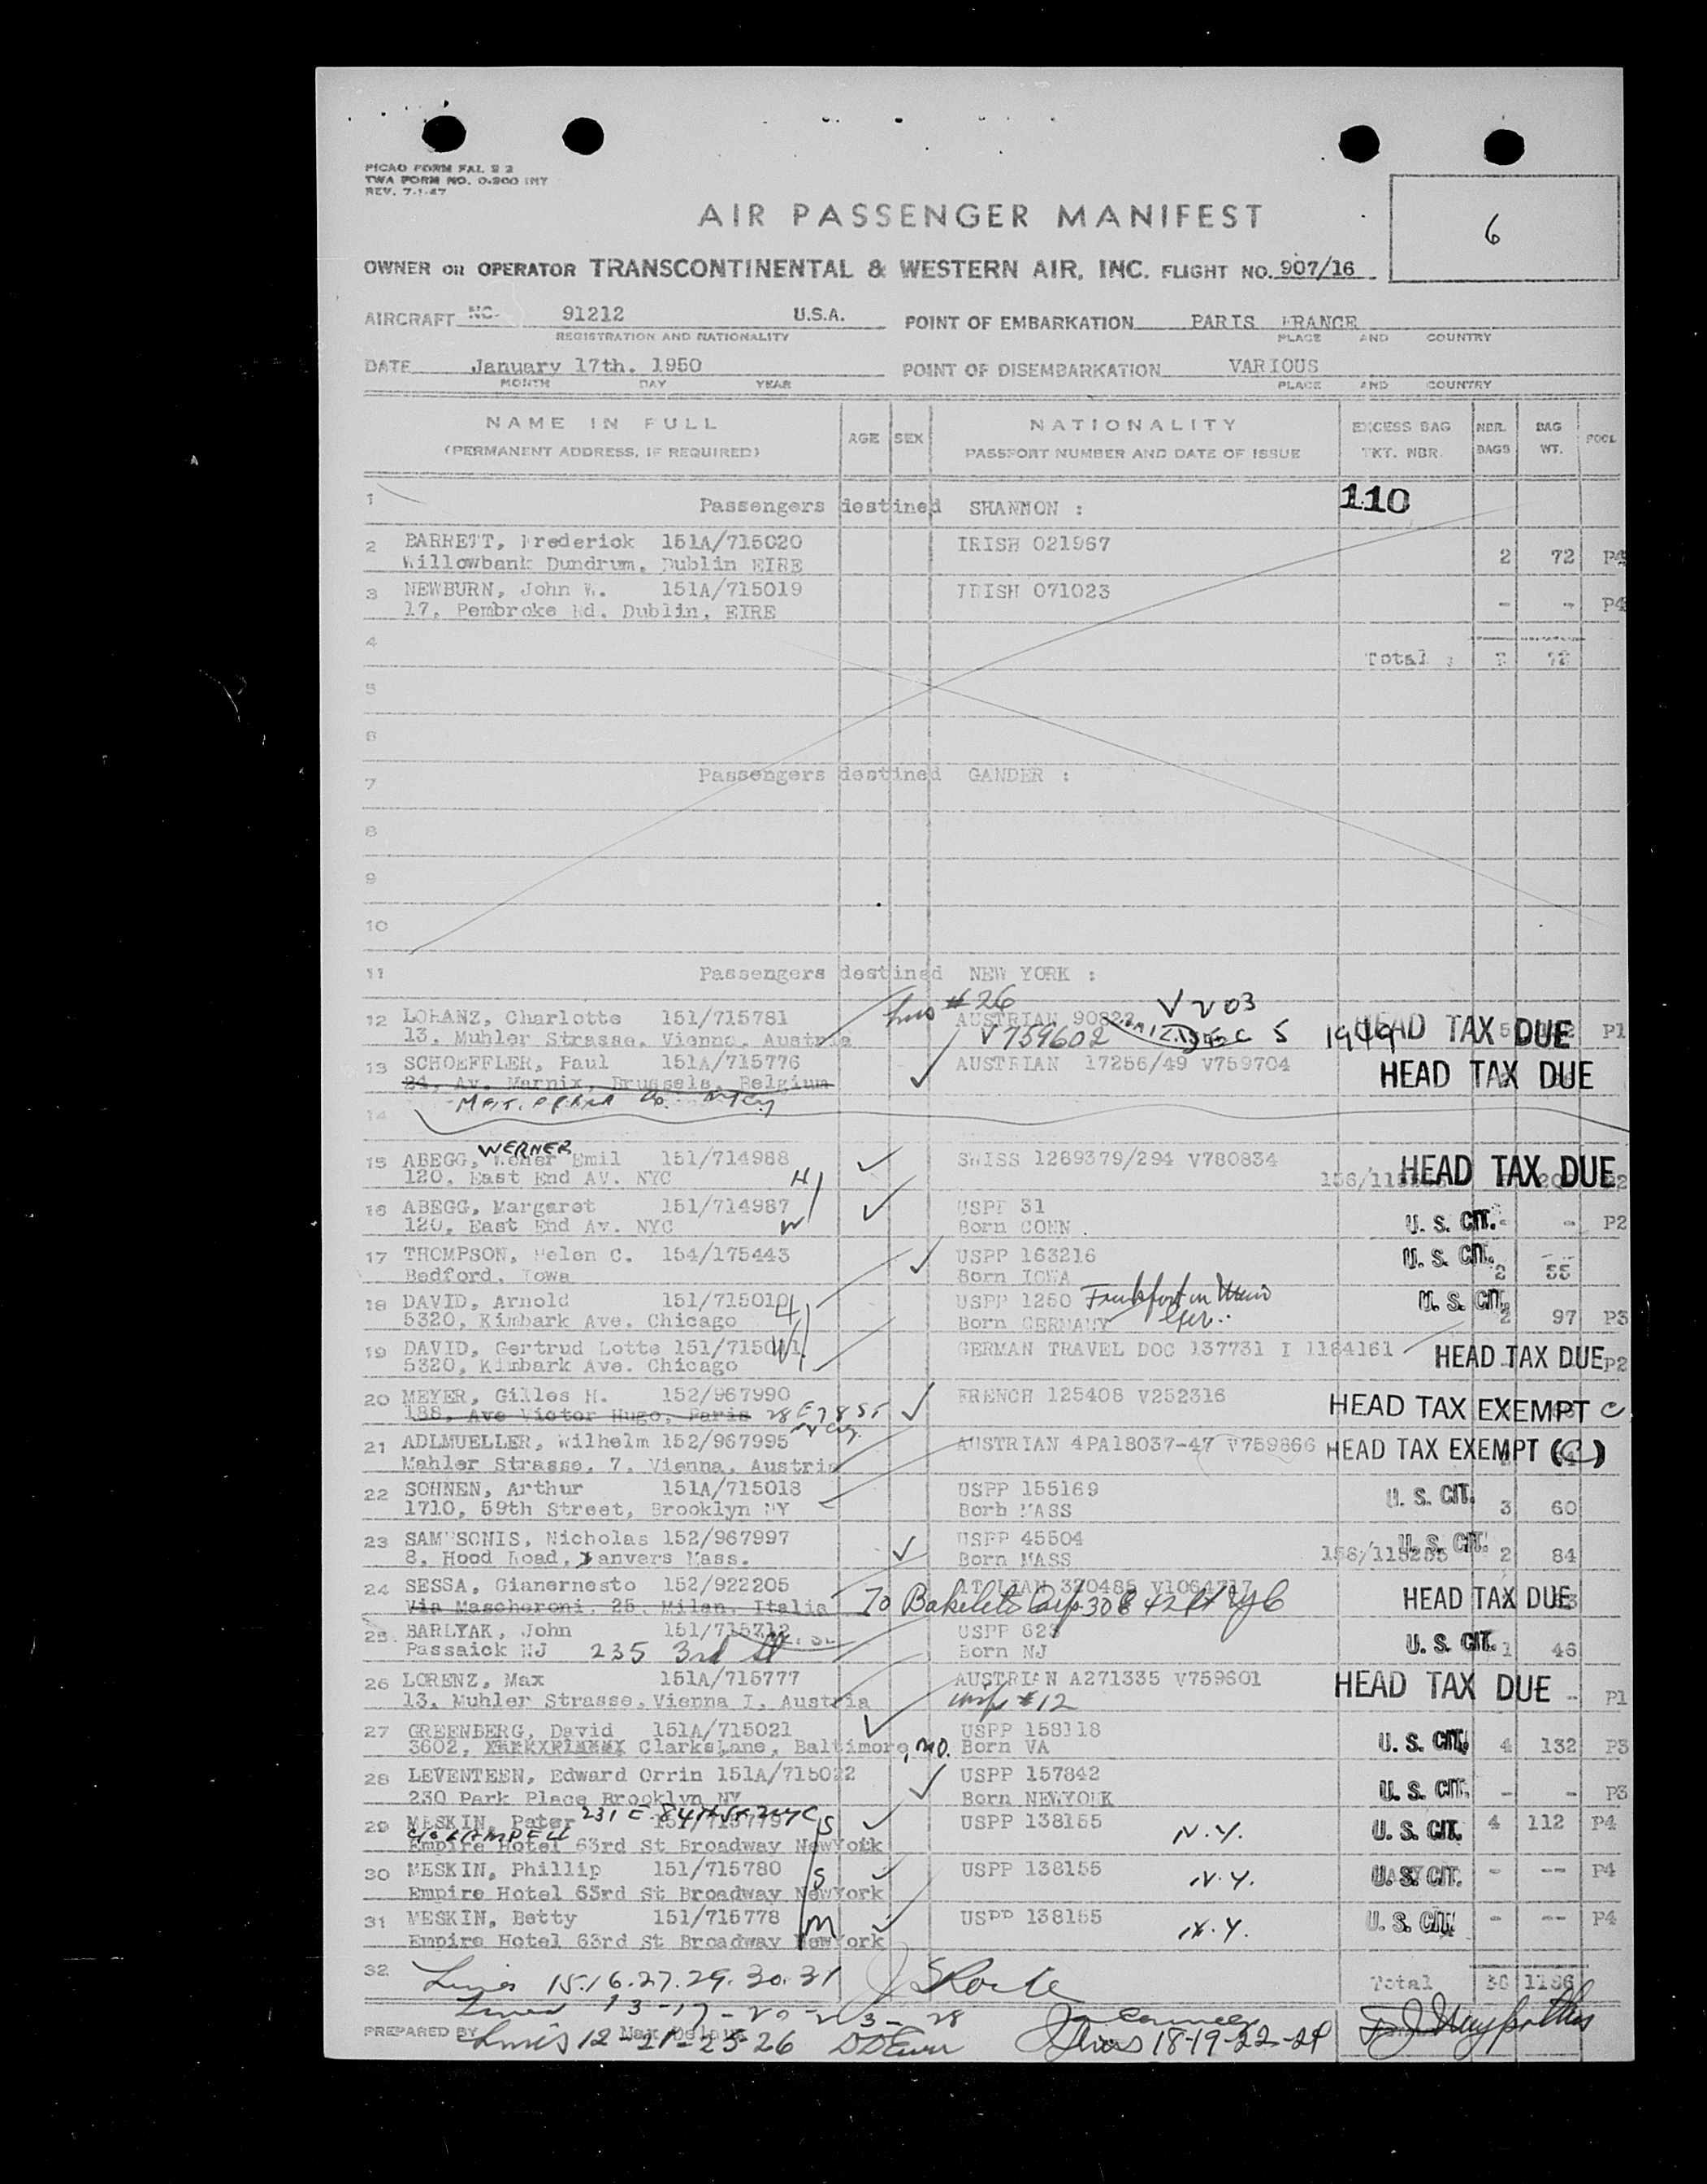 PICAO FORM FAL S 2
TWA FORM NO. O-900 INT
REV. 7-1-47
AIR PASSENGER MANIFEST
6
OWNER OR OPERATOR TRANSCONTINENTAL & WESTERN AIR, INC. FLIGHT NO. 907/16
AIRCRAFT NC- 91212 U.S.A. POINT OF EMBARKATION PARIS FRANCE
REGISTRATION AND NATIONALITY PLACE AND COUNTRY
DATE January 17th. 1950 POINT OF DISEMBARKATION VARIOUS
MONTH DAY YEAR PLACE AND COUNTRY
NAME IN FULL AGE SEX NATIONALITY EXCESS BAG NBR. BAG POOL
(PERMANENT ADDRESS, IF REQUIRED) PASSPORT NUMBER AND DATE OF ISSUE TKT. NBR. BAGS WT.
1 Passengers destined SHANNON : 110
2 BARRETT, Frederick 151A/715020 IRISH 021967
Willowbank Dundrum, Dublin EIRE 2 72 P4
3 NEWBURN, John W. 151A/715019 IRISH 071023
17, Pembroke Rd. Dublin, EIRE - - P4
4 Total : 72
5
6
7 Passengers destined GANDER :
8
9
10
11 Passengers destined NEW YORK :
#26 V V 03
12 LORANZ, Charlotte 151/715781 AUSTRIAN 90822
13. Muhler Strasse, Vienna, Austria V759602 S 1949 HEAD TAX DUE P1
13 SCHOEFFLER, Paul 151A/715776 AUSTRIAN 17256/49 V759704 HEAD TAX DUE
24, Av. Marnix, Brussels, Belgium
14
WERNER
15 ABEGG, Emil 151/714988 SWISS 1269379/294 V780834 HEAD TAX DUE
120, East End AV. NYC H
16 ABEGG, Margaret 151/714987 USPP 31
120, East End Av. NYC W Born CONN. U. S. CIT. - - P2
17 THOMPSON, Helen C. 154/175443 USPP 163216 U. S. CIT.
Bedford, Iowa Born IOWA 2 55
18 DAVID, Arnold 151/715010 H USPP 1250 Frankfort U. S. CIT.
5320, Kimbark Ave. Chicago Born GERMANY 2 97 P3
19 DAVID, Gertrud Lotte 151/715011 W GERMAN TRAVEL DOC 137731 I 1164161 HEAD TAX DUE P2
5320, Kimbark Ave. Chicago
20 MEYER, Gilles H. 152/967990 FRENCH 125408 V252316 HEAD TAX EXEMPT C
188, Ave Victor Hugo, Paris 28 E 78 St
21 ADLMUELLER, Wilhelm 152/967995 AUSTRIAN 4PA18037-47 V759866 HEAD TAX EXEMPT (C)
Mahler Strasse, 7, Vienna, Austria
22 SOHNEN, Arthur 151A/715018 USPP 155169 U. S. CIT.
1710, 59th Street, Brooklyn NY Borb MASS 3 60
23 SAMPSONIS, Nicholas 152/967997 USPP 45504 U. S. CIT.
8, Hood Road, Danvers Mass. Born MASS 2 84
24 SESSA, Gianernesto 152/922205 ITALIAN 320485 HEAD TAX DUE
Via Mascheroni, 25, Milan, Italia To Bakelite Corp 30 E 42 St NYC
25 BARLYAK, John 151/715712 USPP 623 U. S. CIT. 1 46
Passaick NJ 235 3rd St Born NJ
26 LORENZ, Max 151A/715777 AUSTRIAN A271335 V759601 HEAD TAX DUE - P1
13, Muhler Strasse, Vienna I, Austria wife #12
27 GREENBERG, David 151A/715021 USPP 158118
3602, Clarks Lane, Baltimore, MD. Born VA U. S. CIT. 4 132 P3
28 LEVENTEEN, Edward Orrin 151A/715022 USPP 157842
230 Park Place Brooklyn NY Born NEWYORK U. S. CIT. - - P3
231 E 84th St NYC
29 MESKIN, Peter 151/715779 S USPP 138155 N.Y. U. S. CIT. 4 112 P4
Empire Hotel 63rd St Broadway NewYork
30 MESKIN, Phillip 151/715780 S USPP 138155 N.Y. U. S. CIT. - -- P4
Empire Hotel 63rd St Broadway NewYork
31 MESKIN, Betty 151/715778 M USPP 138155 N.Y. U. S. CIT. - -- P4
Empire Hotel 63rd St Broadway NewYork
32 Lines 15.16.27.29.30.31 Total 1186
Lines 13-17-20-23-28
PREPARED BY Lines 12-21-25-26 Lines 18-19-22-24